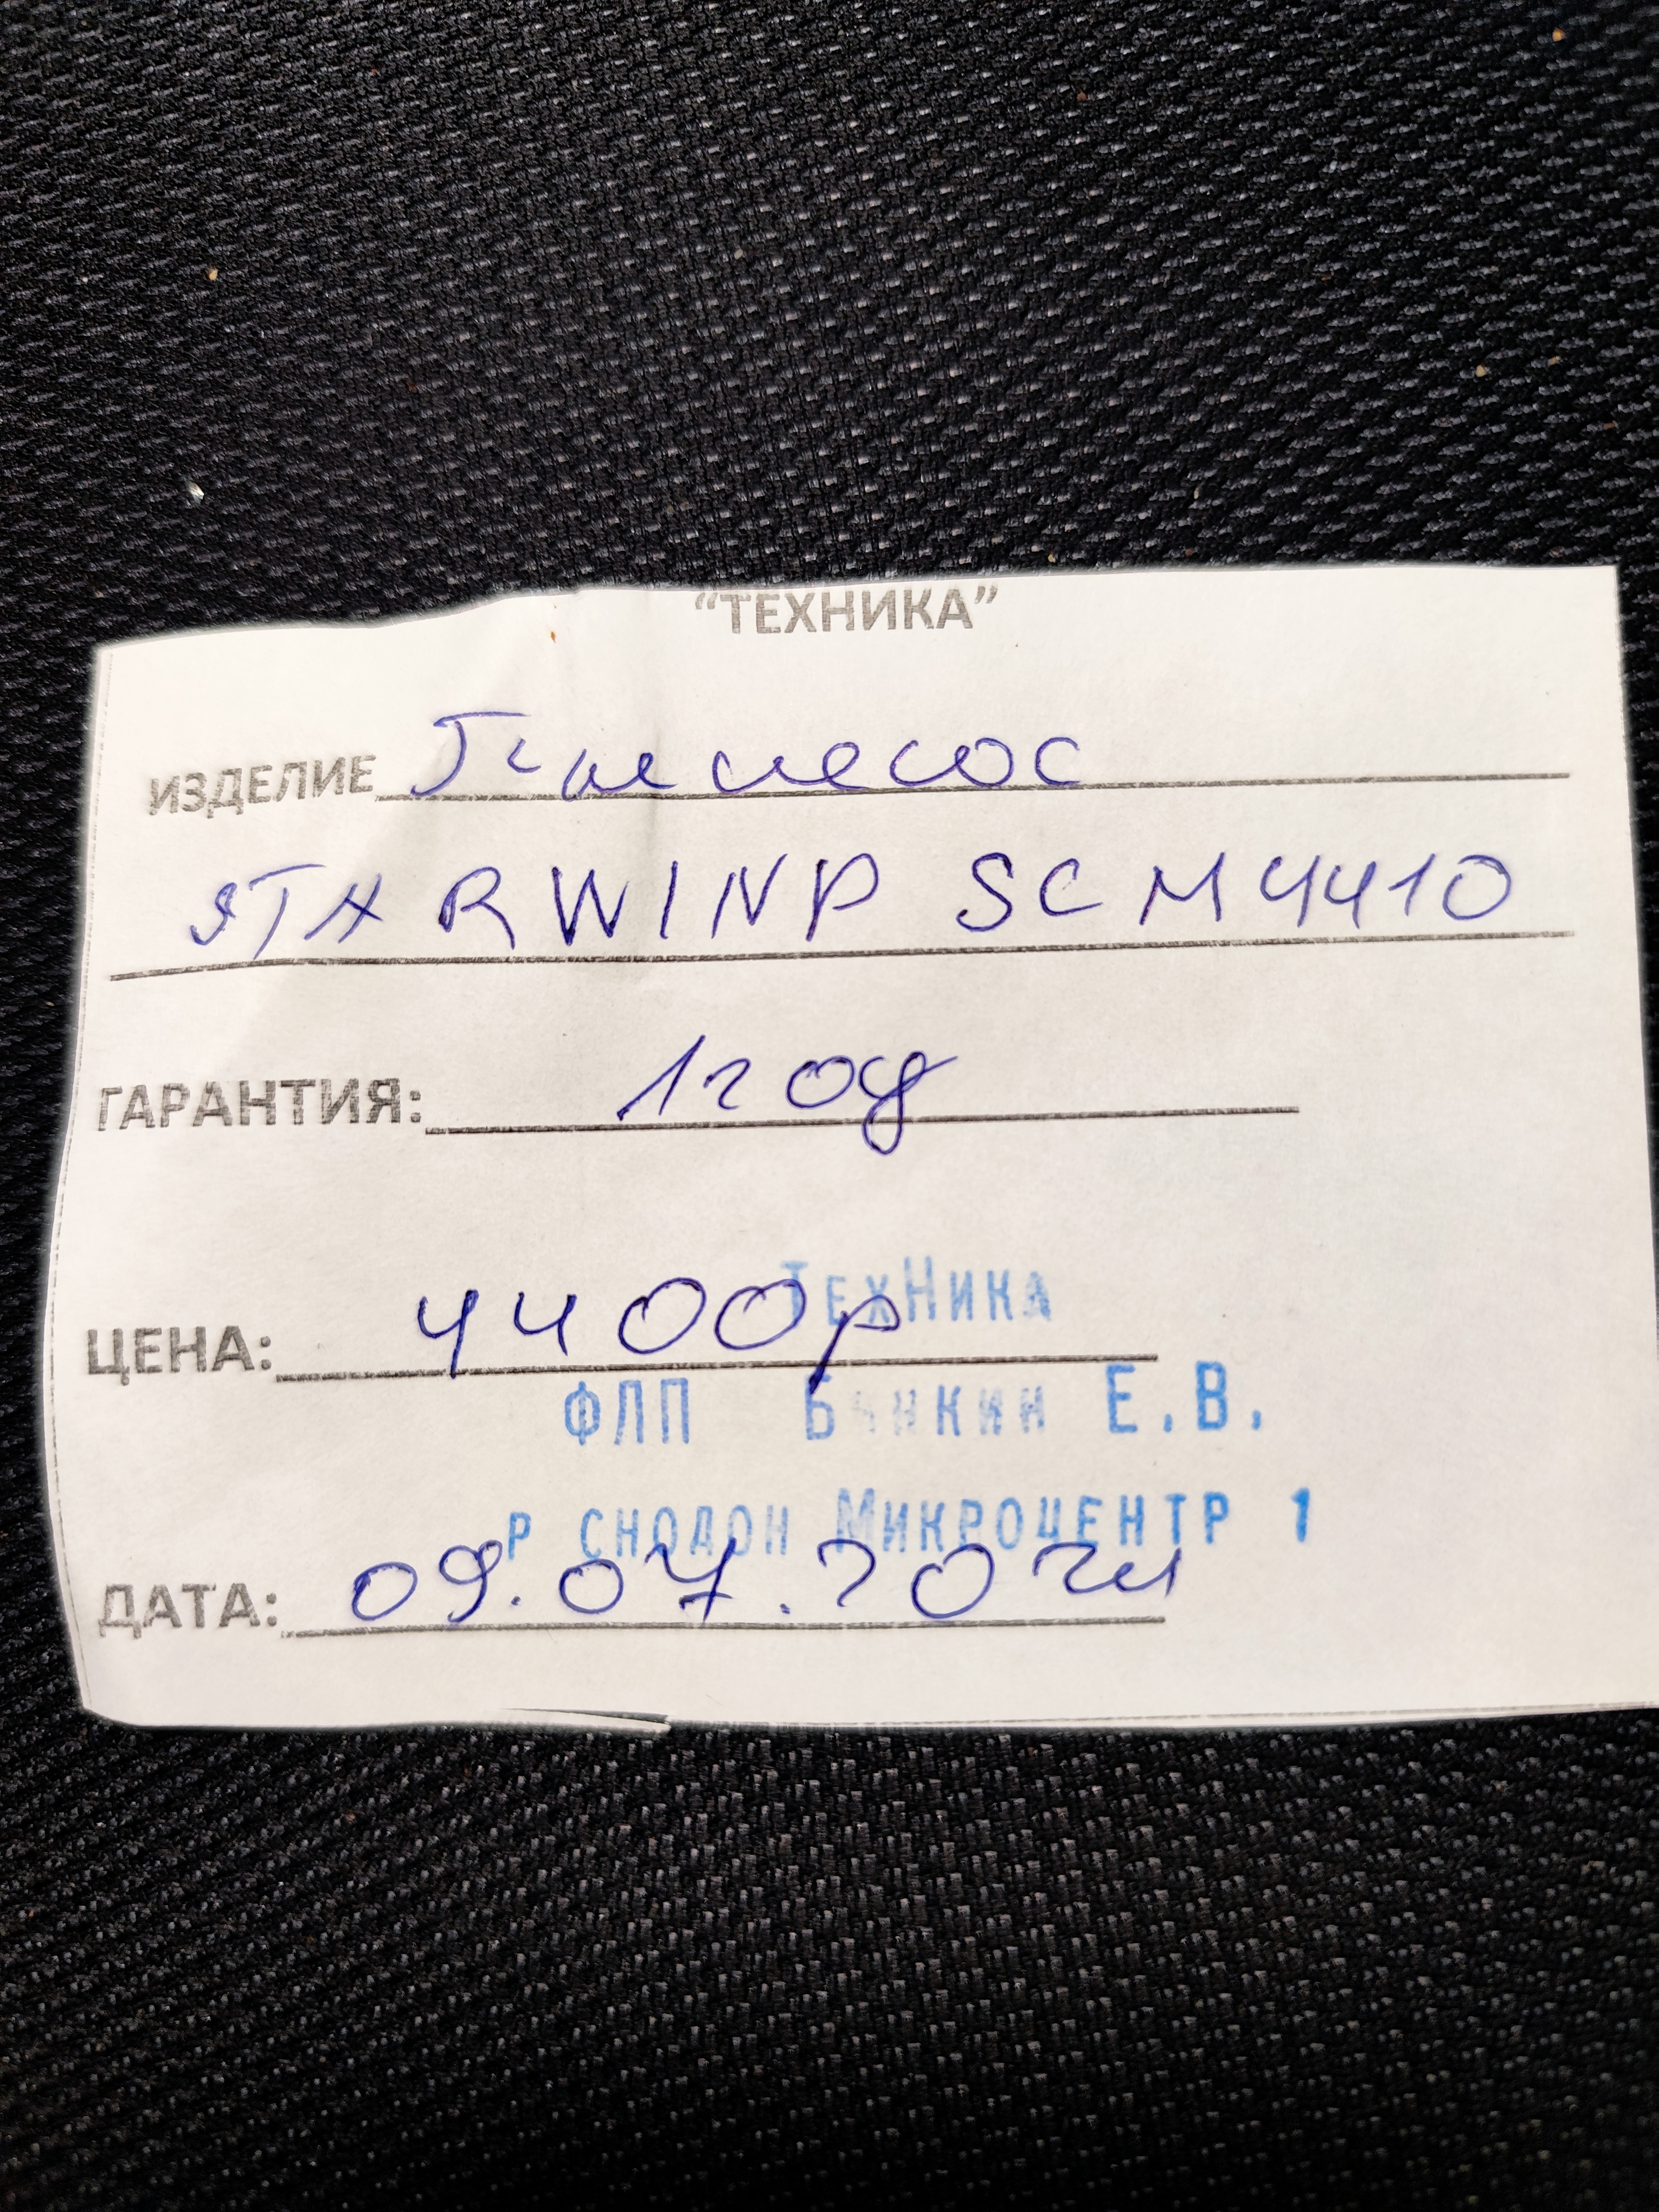 “ТЕХНИКА”
ИЗДЕЛИЕ Пылесос
STARWIND SCM4410
ГАРАНТИЯ: 1 год
ЦЕНА: 4400р
ТехНика
ФЛП Е.В.
Р СНОДОН МИКРОЦЕНТР 1
ДАТА: 09.07.2024